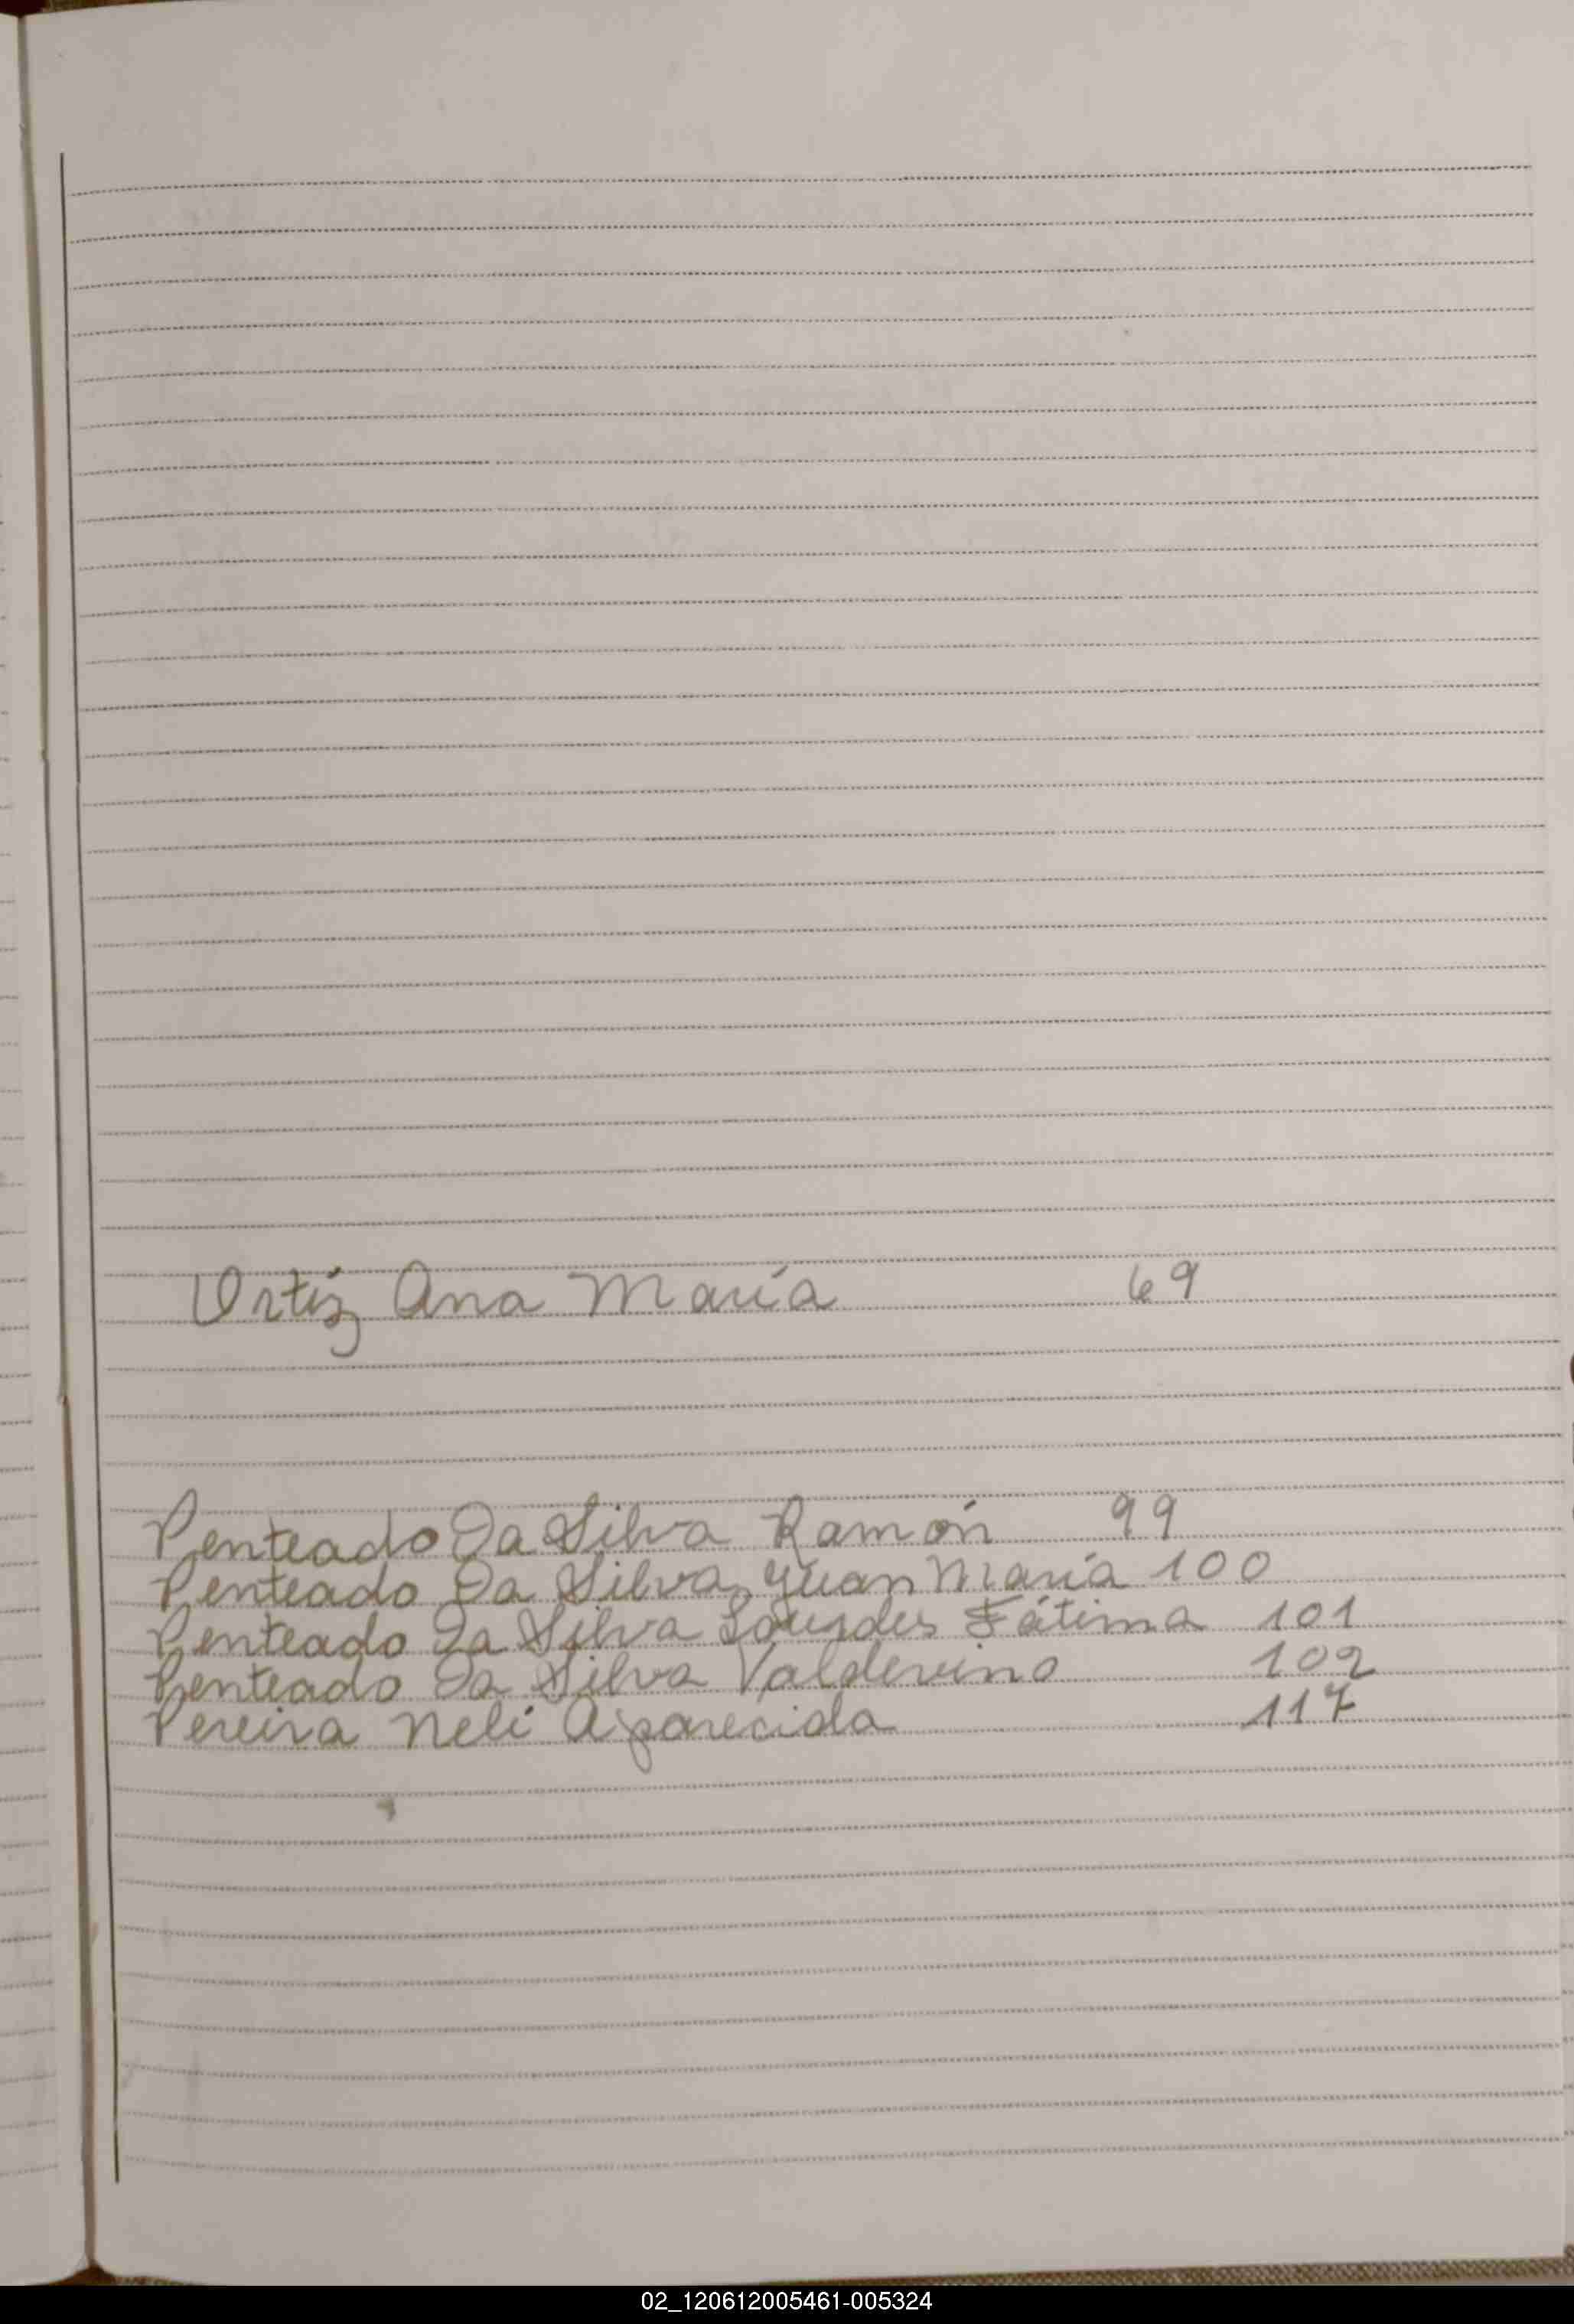 Ortiz Ana María 69
Penteado Da Silva Ramón 99
Penteado Da Silva Juan María 100
Penteado Da Silva Lourdes Fátima 101
Penteado Da Silva Valdevino 102
Pereira Neli Aparecida 117
02_120612005461-005324